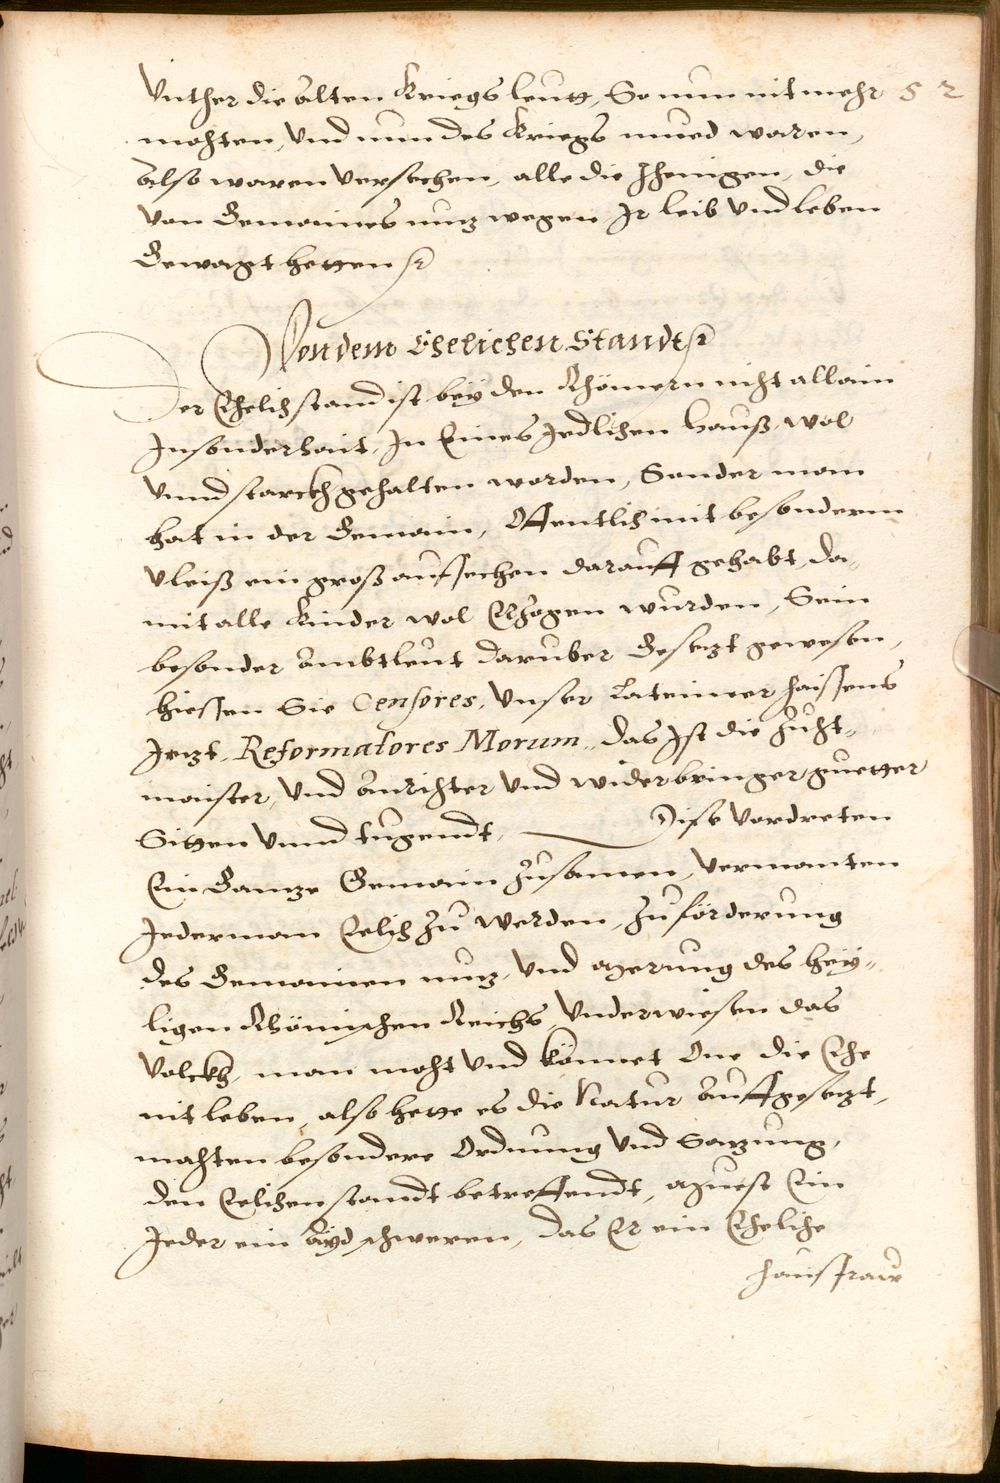 Vnther die Alten Kriegs leutt, So nun nit mehr 52
mohten, Vnd nun des Kriegs mued waren,
Also waren Versechen, alle die Jhenigen, die
Von Gemaines nuz wegen Ir leib Vnd leben
Gewagt hetten
Von dem Ehelichen Standt
Der Ehelich stand ist bey den Rhömern nicht allain
Insonderhait, In Eines Jedlichen Hauß, wol
Vnnd starckh gehalten worden, Sonder man
hat in der Gemain, Offentlich mit besonderm
Vleiß ein groß aufsechen darauff gehabt, da-
mit alle Kinder wol Erzogen wurden, Sein
besonder Ambtleut daruber Gesezt gewesen,
hiessen Sie Censores, Vnser Lateinner haissens
Jezt, Reformatores Morum, das Ist die Zucht-
maister, Vnd Anrichter Vnd widerbringer guetter
Sitten Vnnd tugendt, Dise Vordreten
Ein Ganze Gemain Zusamen, Vermanten
Jederman Eelich Zu werden, Zu förderung
des Gemainen nuz, Vnd merung des hey-
ligen Rhömischen Reichs Vnderwiesen das
Volckh, man moht Vnd könnet One die Ehe
nit leben, also hette es die Natur Auffgesezt,
machten besondere Ordnung Vnd Sazung,
den Eelichen standt betreffendt, muest Ein
Jeder ein Ayd schweren, das Er ein Eheliche
hausfraw